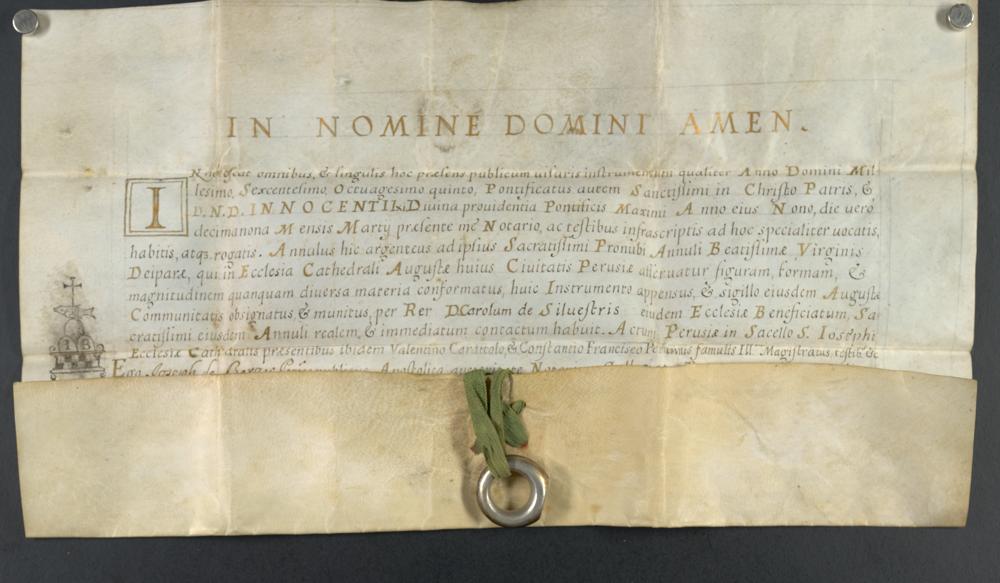 IN NOMINE DOMINI AMEN.
Notescat omnibus, & singulis hoc præsens publicum uisuris instrumentum qualiter Anno Domini Mil
lesimo, Sexcentesimo, Octuagesimo quinto, Pontificatus autem Sanctissimi in Christo Patris, &
D. N. D. INNOCENTII Diuina prouidentia Pontificis Maximi Anno eius Nono, die uero
decimanona Mensis Marty præsente me Notario, ac testibus infrascriptis ad hoc specialiter uocatis,
habitis, atq3 rogatis. Annulus hic argenteus ad ipsius Sacratissimi Pronubi Annuli Beatissimæ Virginis
Deiparæ, qui in Ecclesia Cathedrali Augustæ huius Ciuitatis Perusiæ figuram, formam, &
magnitudinem quanquam diuersa materia conformatus, huic Instrumento appensus, & sigillo eiusdem Augustæ
Communitatis obsignatus, & munitus, per Rer D. Carolum de Siluestris eiudem Ecclesiæ Beneficiatum, Sa
cratissimi eiusdem Annuli realem, & immediatum contactum habuit. Actum Perusiæ in Sacello S. Iosephi
Ecclesiæ Cathedralis præsentibus ibidem Valentino & Constantio Francisco famulis Ill. Magistratus, testib. &c
Ego Ioseph de Notarius